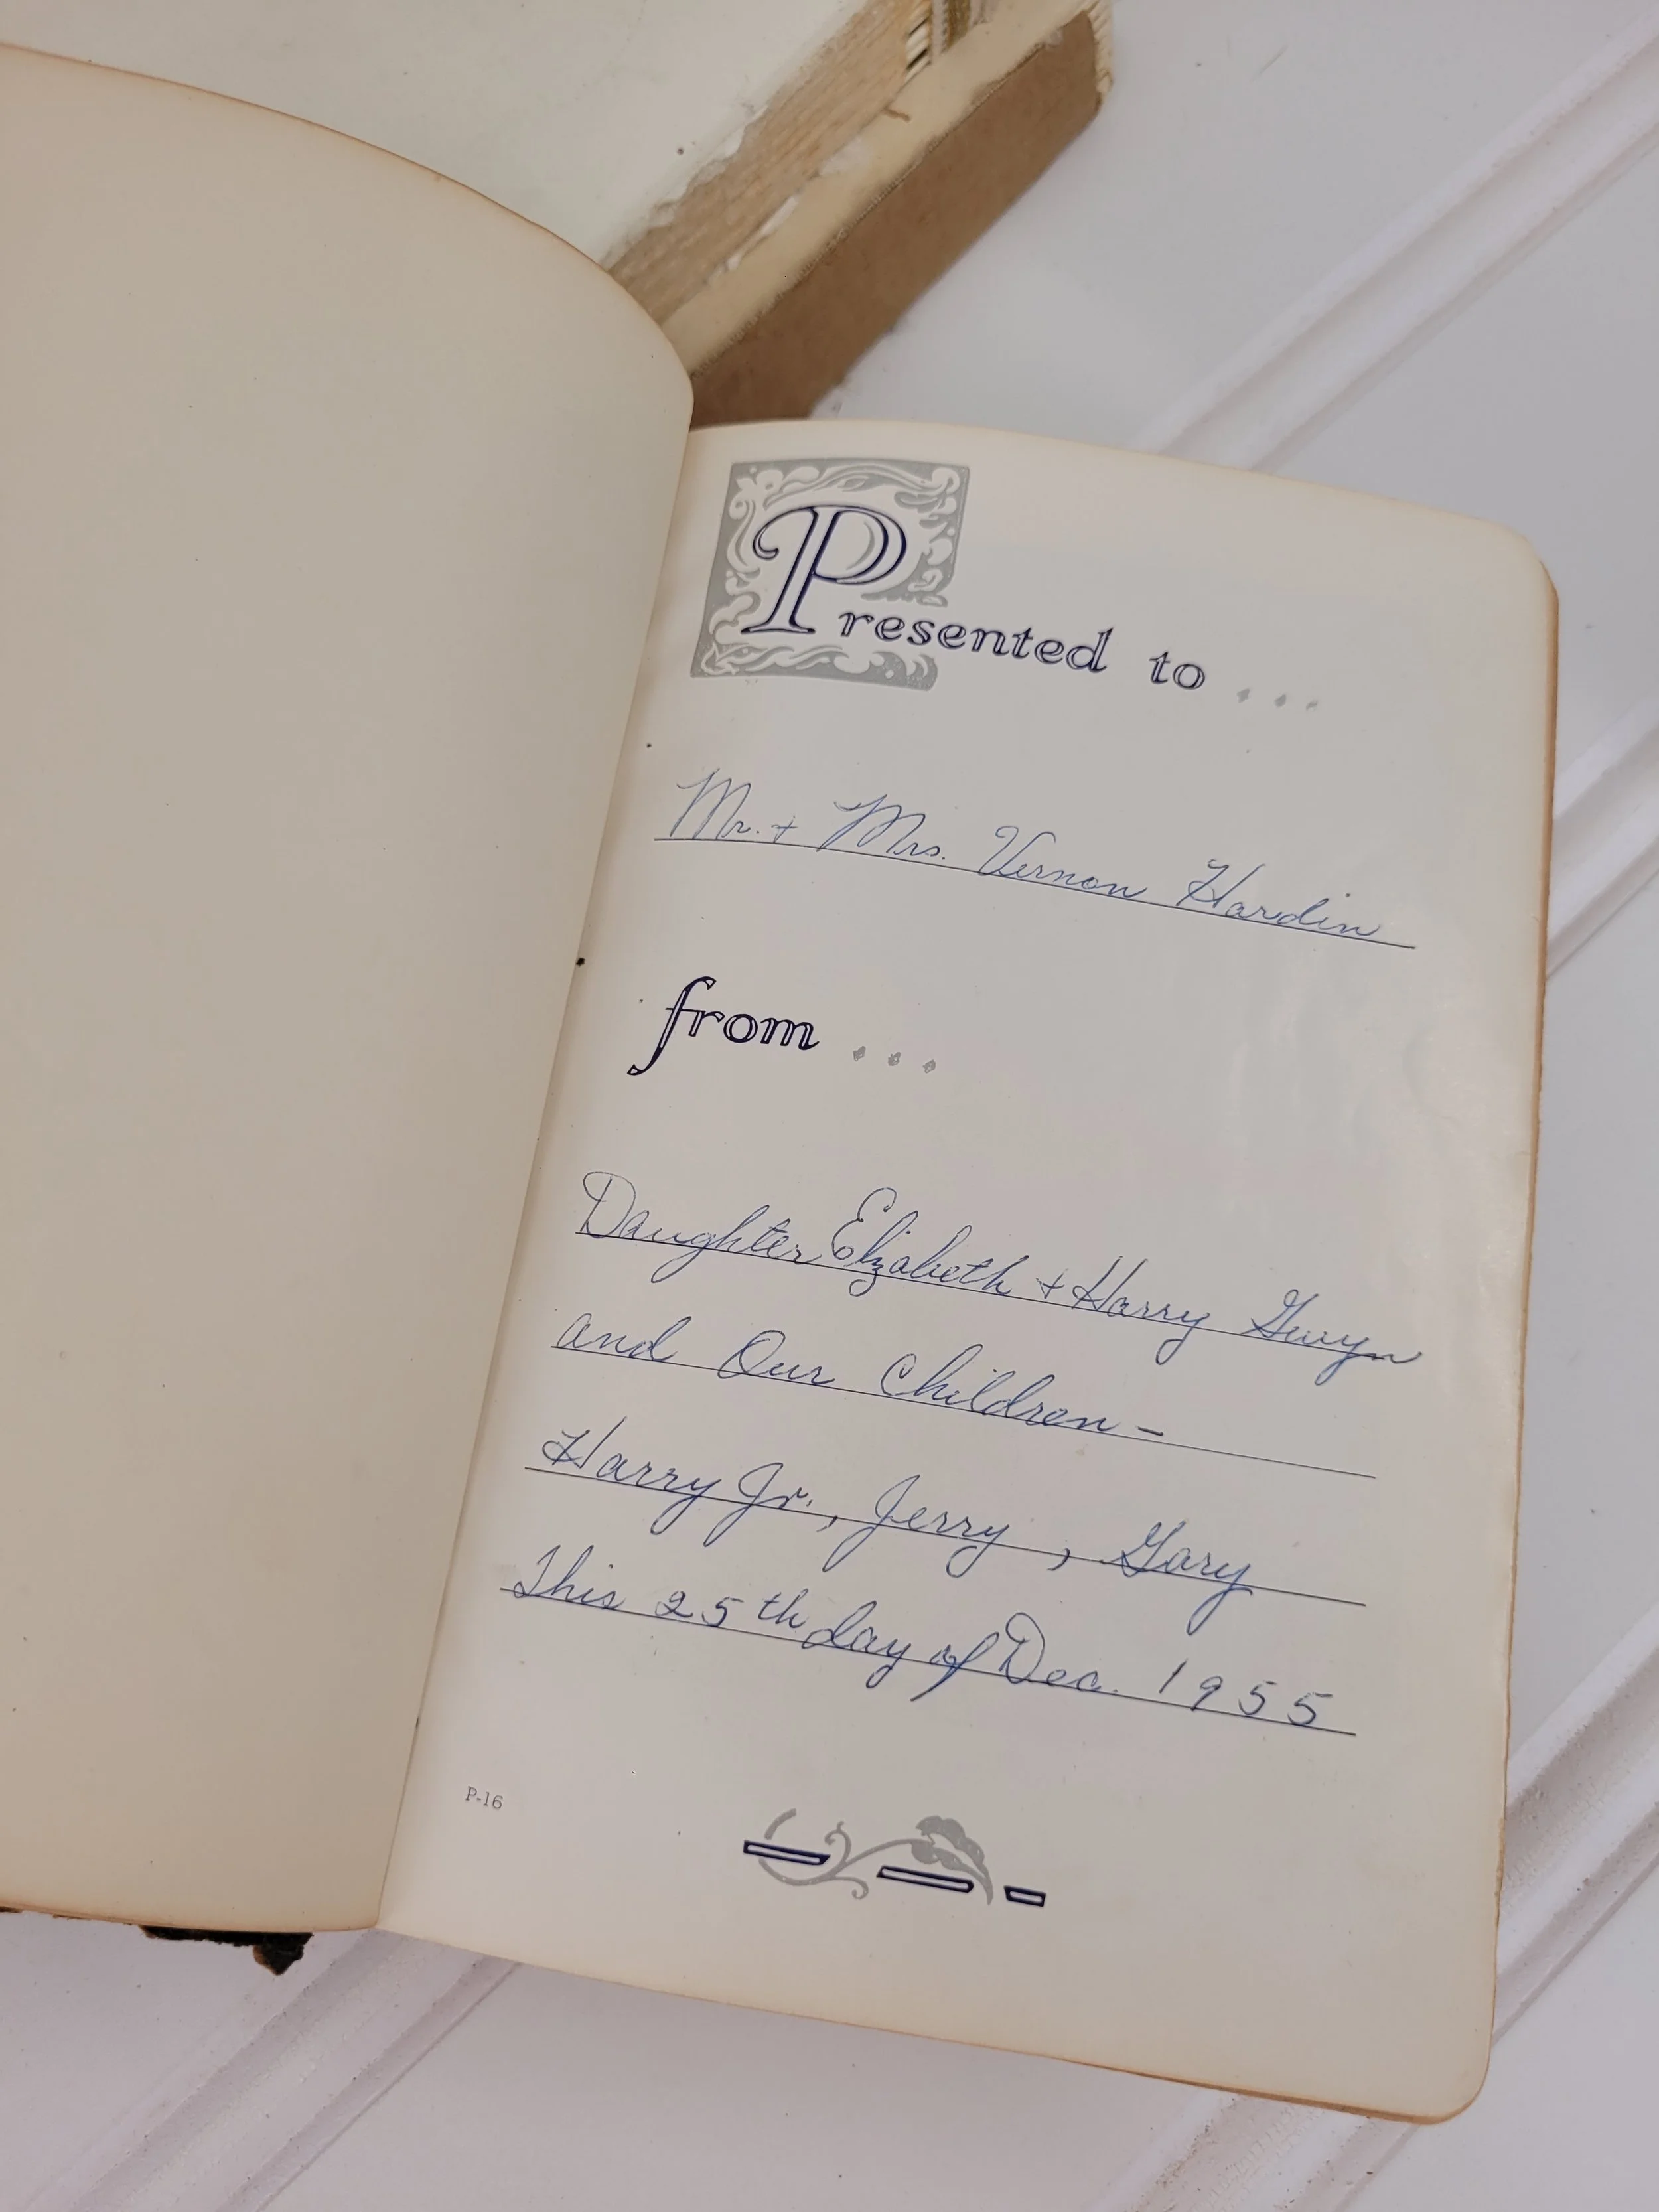 Presented to ...
Mr. + Mrs. Vernon Hardin
from ...
Daughter Elizabeth + Harry Gwyn
and Our Children -
Harry Jr., Jerry, Gary
This 25th day of Dec. 1955
P-16